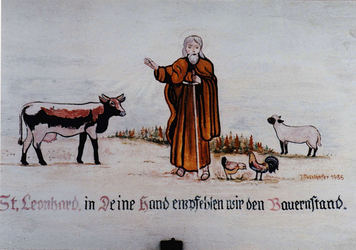 St. Leonhard, in Deine Hand empfehlen wir den Bauernstand.